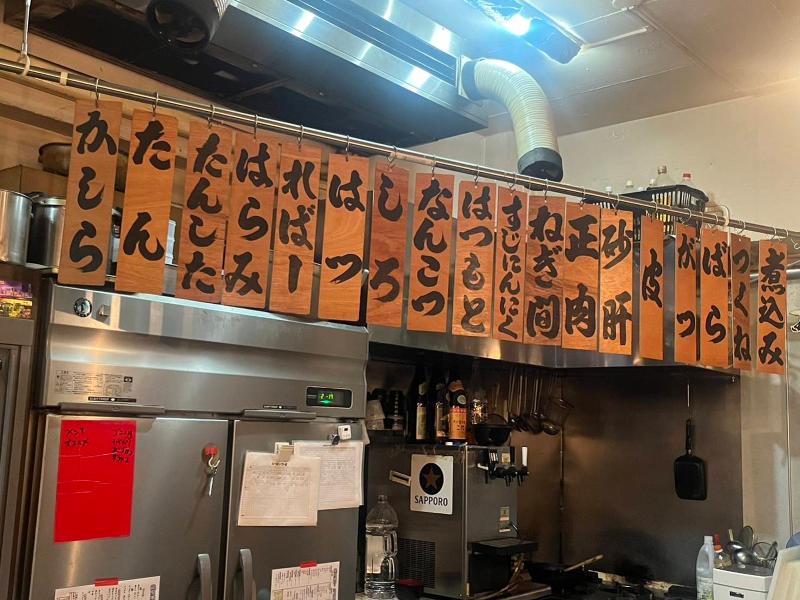 かしら
たん
たんした
はらみ
ればー
はつ
しろ
なんこつ
はつもと
すじにんにく
ねぎ間
正肉
砂肝
皮
がつ
ばら
つくね
煮込み
SAPPORO